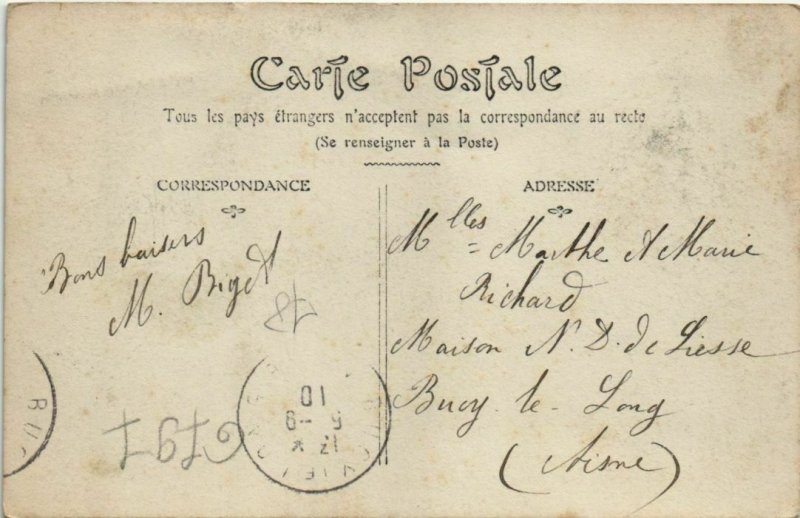 Carte Postale
Tous les pays étrangers n'acceptent pas la correspondance au recto
(Se renseigner à la Poste)
CORRESPONDANCE
ADRESSE
Bons baisers
M. Biget
Mlles Marthe & Marie
Richard
Maison N. D. de Liesse
Bucy-le-Long
(Aisne)
78
10
5-9
BUC